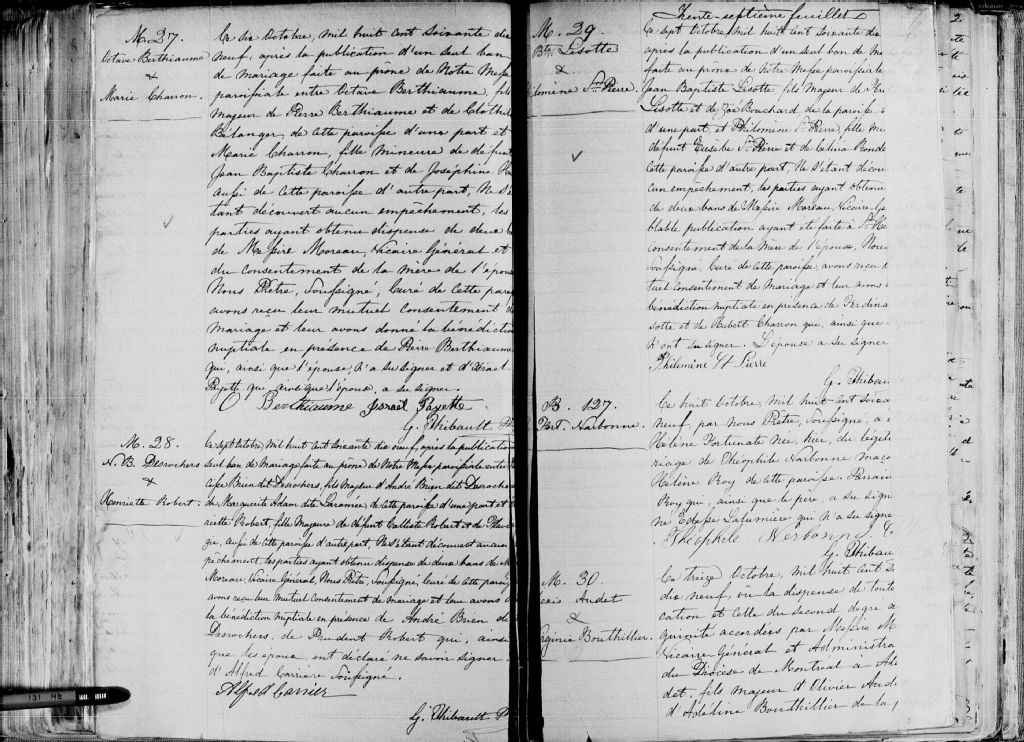 M. 27.
Octave Berthiaume
&
Marie Charron.
Ce six Octobre, mil huit cent soixante dix
neuf, après la publication d'un seul ban
de mariage faite au prône de Notre Messe
paroissiale entre Octave Berthiaume, fils
majeur de Pierre Berthiaume et de Clothil
Bélanger, de cette paroisse d'une part et
Marie Charron, fille mineure de défunt
Jean Baptiste Charron et de Josephine
aussi de cette paroisse d'autre part, Ne s'é
tant découvert aucun empêchement, les
parties ayant obtenu dispense de deux b
de Messire Moreau, Vicaire Général et
du consentement de la mère de l'épou
Nous Prêtre, Soussigné, Curé de cette paro
avons reçu leur mutuel consentement de
mariage et leur avons donné la bénédiction
nuptiale en présence de Pierre Berthiaume
qui, ainsi que l'épouse, n'a su signer et d'Israel
Payett qui ainsi que l'époux, a su signer.
O Berthiaume Israel Payette
G. Thibault P
M. 28.
N. B. Desrochers
&
Henriette Robert.
Ce sept Octobre, mil huit cent soixante dix neuf, après la publication
seul ban de Mariage faite au prône de Notre Messe paroissiale entre
Brien dit Desrochers, fils majeur d'André Brien dit Desrocher
de Marguerite Adam dite Laramée, de cette paroisse d'une part et
riette Robert, fille Majeure de défunt Calliste Robert et de
ge, aussi de cette paroisse d'autre part, Ne s'étant découvert aucun
pêchement, les parties ayant obtenu dispense de deux bans de M
Moreau, Vicaire Général, Nous Prêtre, Soussigné, Curé de cette paroiss
avons reçu leur mutuel consentement de mariage et leur avons d
la bénédiction nuptiale en présence de André Brien dit
Desrochers, de Prudent Robert qui, ainsi
que les époux, ont déclaré ne savoir signer
d'Alfred Carrière Soussigné.
Alfred Carrier
G. Thibault P
131 HS
Trente-septième feuillet
M. 29.
Bte Lisotte
&
ilomène St Pierre.
Ce sept Octobre, mil huit cent soixante di
après la publication d'un seul ban de M
faite au prône de Notre Messe paroissiale
Jean Baptiste Lisotte, fils Majeur de
Lisotte et de Zoé Bouchard de la paroisse
d'une part, et Philomène St Pierre, fille mi
défunt Eusèbe St Pierre et de Celina Bonde
cette paroisse d'autre part, Ne s'étant décou
cun empêchement, les parties ayant obtenu
de deux bans de Messire Moreau, Vicaire Gé
blable publication ayant été faite à St
consentement de la Mère de l'épouse, Nou
Soussigné, Curé de cette paroisse, avons reçu
tuel consentement de Mariage et leur avons
bénédiction nuptiale en présence de Ferdina
sotte et de Hubert Charron qui, ainsi que
n'ont su signer. L'épouse a su signer
Philomine St Pierre
G. Thibau
B. 127.
Fort. Narbonne.
Ce huit Octobre, mil huit cent soixa
neuf, par Nous Prêtre, Soussigné, a é
Héline Fortunate Née, hier, du légiti
riage de Théophile Narbonne maço
Héline Roy de cette paroisse. Parrain
Roy qui, ainsi que le père, a su signe
ne Edesse Lalumière qui n'a su signe
Théophile Nerbonne
G. Thibau
M. 30.
exis Audet
&
irginie Bouthillier.
Ce treize Octobre, mil huit cent
dix neuf, vu la dispense de toute
cation et celle du second degré
quinité accordées par Messire M
Vicaire Général et Administra
du Diocèse de Montréal à Al
det, fils majeur d'Olivier Aude
d'Adéline Bouthillier de la